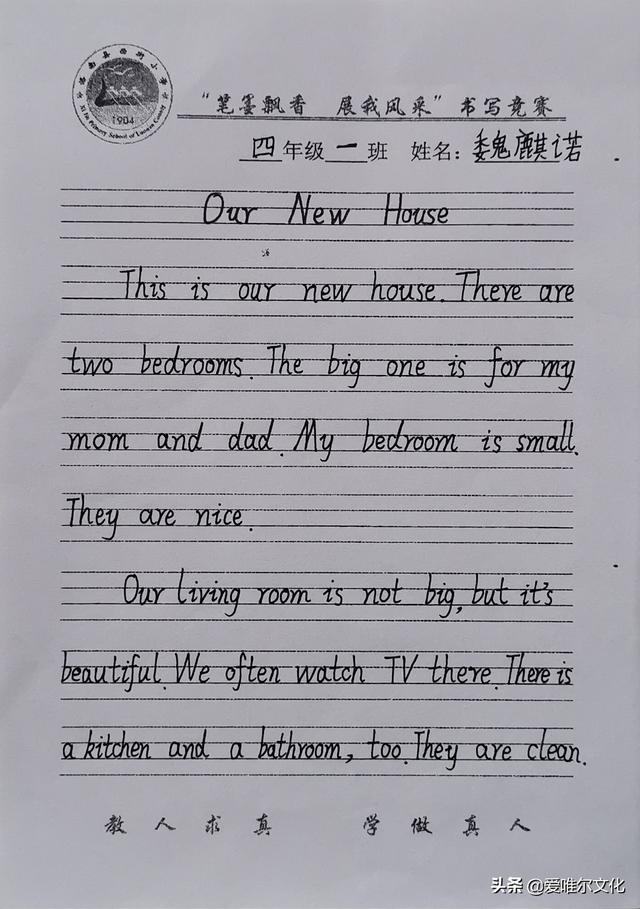 1904
"笔墨飘香 展我风采" 书写竞赛
四年级一班 姓名：魏麒诺
Our New House
This is our new house. There are
two bedrooms. The big one is for my
mom and dad. My bedroom is small.
They are nice.
Our living room is not big, but it's
beautiful. We often watch TV there. There is
a kitchen and a bathroom, too. They are clean.
教人求真 学做真人
头条 @爱唯尔文化